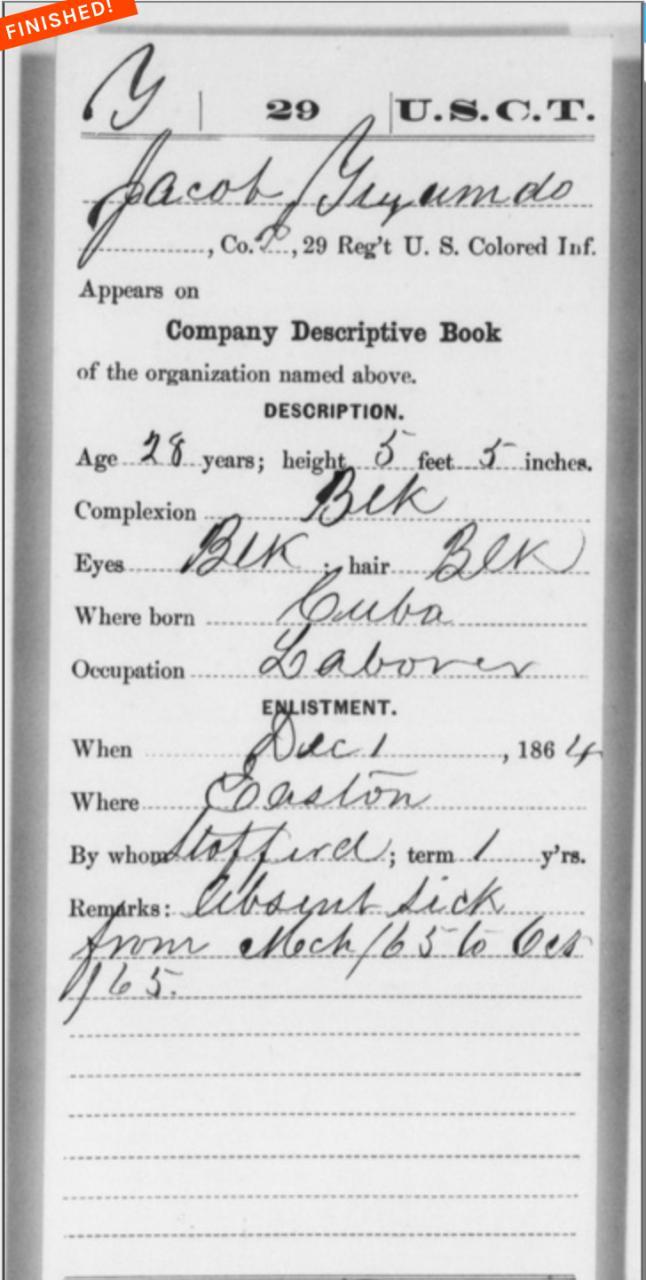 FINISHED!
Y | 29 | U.S.C.T.
Jacob
, Co. , 29 Reg't U. S. Colored Inf.
Appears on
Company Descriptive Book
of the organization named above.
DESCRIPTION.
Age 28 years; height 5 feet 5 inches.
Complexion Blk
Eyes Blk ; hair Blk
Where born Cuba
Occupation Laborer
ENLISTMENT.
When Dec 1, 1864
Where Easton
By whom ; term 1 y'rs.
Remarks: Absent sick
from Mch /65 to Oct
/65.